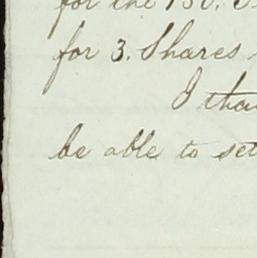 for the 150.
for 3. Shares
I
be able to